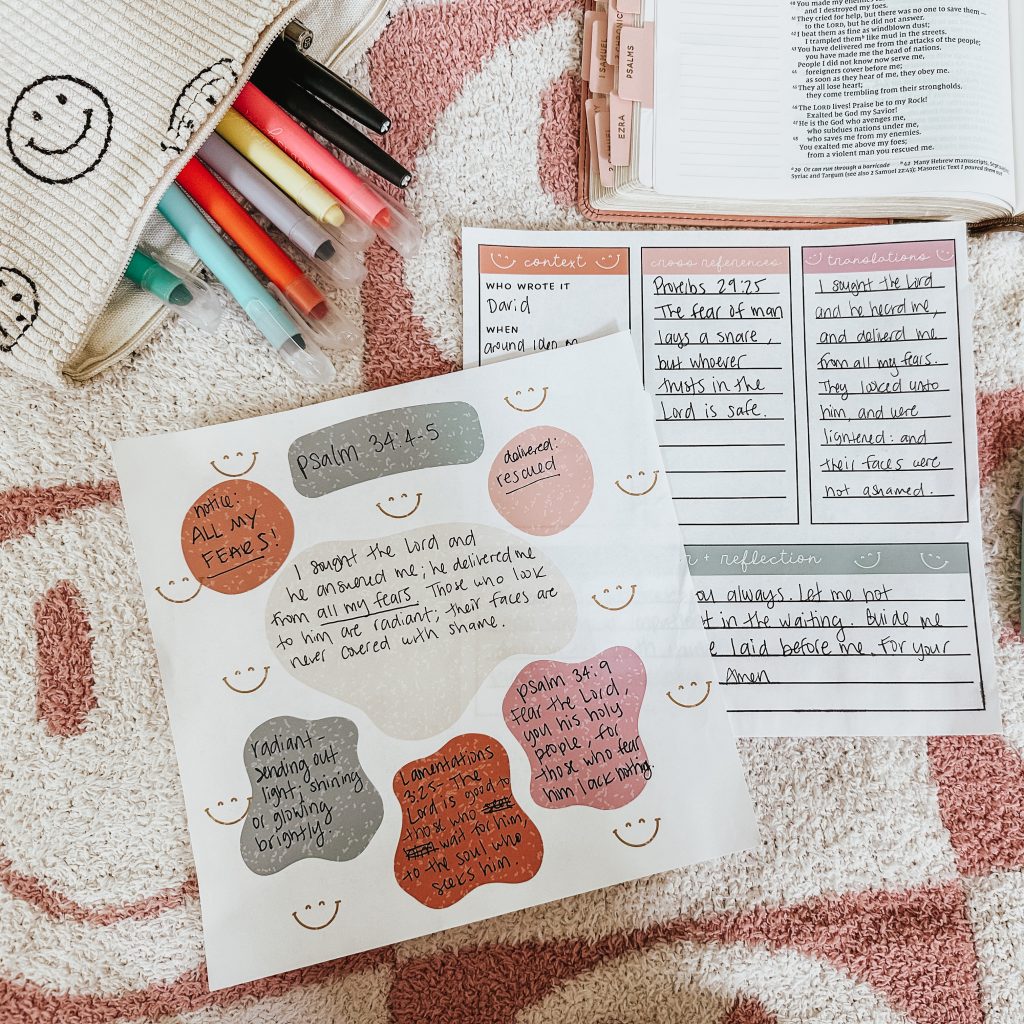 You made my enemies
and I destroyed my foes.
41 They cried for help, but there was no one to save them —
to the LORD, but he did not answer.
42 I beat them as fine as windblown dust;
I trampled them like mud in the streets.
43 You have delivered me from the attacks of the people;
you have made me the head of nations.
People I did not know now serve me,
44 foreigners cower before me;
as soon as they hear of me, they obey me.
45 They all lose heart;
they come trembling from their strongholds.
46 The LORD lives! Praise be to my Rock!
Exalted be God my Savior!
47 He is the God who avenges me,
who subdues nations under me,
48 who saves me from my enemies.
You exalted me above my foes;
from a violent man you rescued me.
29 Or can run through a barricade 42 Many Hebrew manuscripts, Septuagint,
Syriac and Targum (see also 2 Samuel 22:43); Masoretic Text I poured them out
1 SAMUEL
PSALMS
EZRA
context
WHO WROTE IT
David
WHEN
around
cross references
Proverbs 29:25
The fear of man
lays a snare,
but whoever
trusts in the
Lord is safe.
translations
I sought the Lord
and he heard me,
and deliverd me
from all my fears.
They looked unto
him, and were
lightened: and
their faces were
not ashamed.
+ reflection
always. Let me not
in the waiting. Guide me
laid before me. For your
Amen
psalm 34:4-5
delivered:
rescued
notice:
ALL MY
FEARS!
I sought the Lord and
he answered me; he delivered me
from all my fears. Those who look
to him are radiant; their faces are
never covered with shame.
psalm 34:9
Fear the Lord,
you his holy
people, for
those who fear
him lack nothing.
radiant-
sending out
light; shining
or glowing
brightly.
Lamentations
3:25- The
Lord is good to
those who
wait for him,
to the soul who
seeks him.